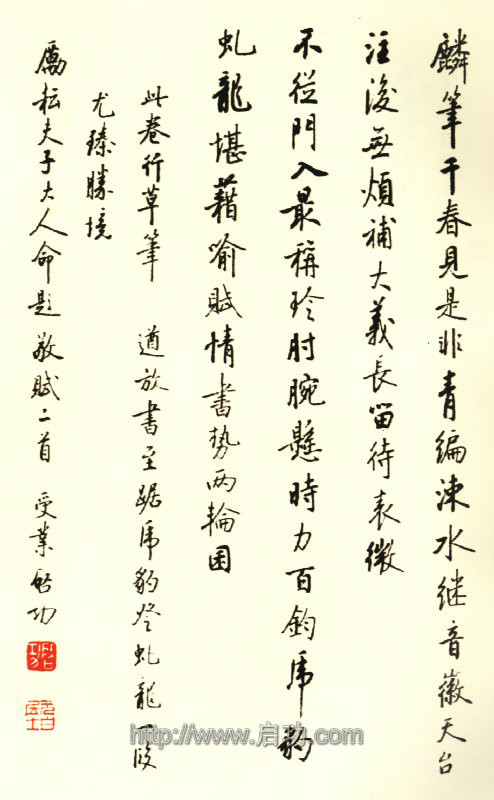 麟筆千春見是非青編涑水继音徽天台
注後無煩補大義長留待表微
不從門入最稱珍肘腕懸時力百鈞虎豹
虬龍堪藉喻賦情書勢兩輪囷
此卷行草筆　遒放書至踞虎豹登虬龍一段
尤臻勝境
勵耘夫子大人命題敬賦二首　受業啓功
http://www.启功.com